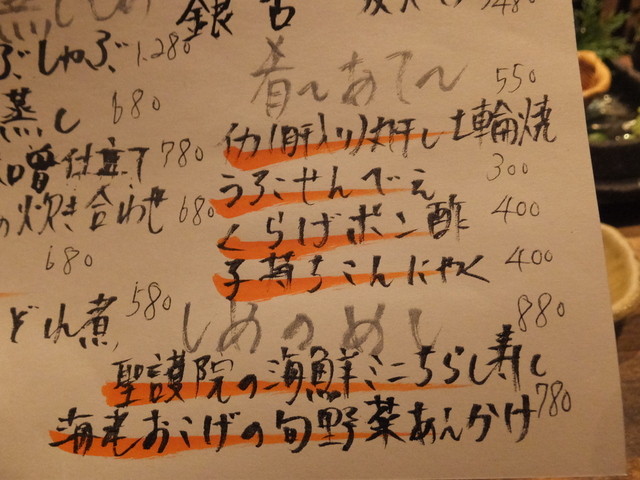 銀杏
ぶしゃぶ 1.280
蒸し 680
噌仕立て 780
の炊き合わせ 680
680
どれ煮 580
肴〜あて〜
イカ(肝入り)丸干し七輪焼 550
うぶせんべえ 300
くらげポン酢 400
子持ちこんにゃく 400
しめのめし
聖護院の海鮮ミニちらし寿し 880
海老おこげの旬野菜あんかけ 780